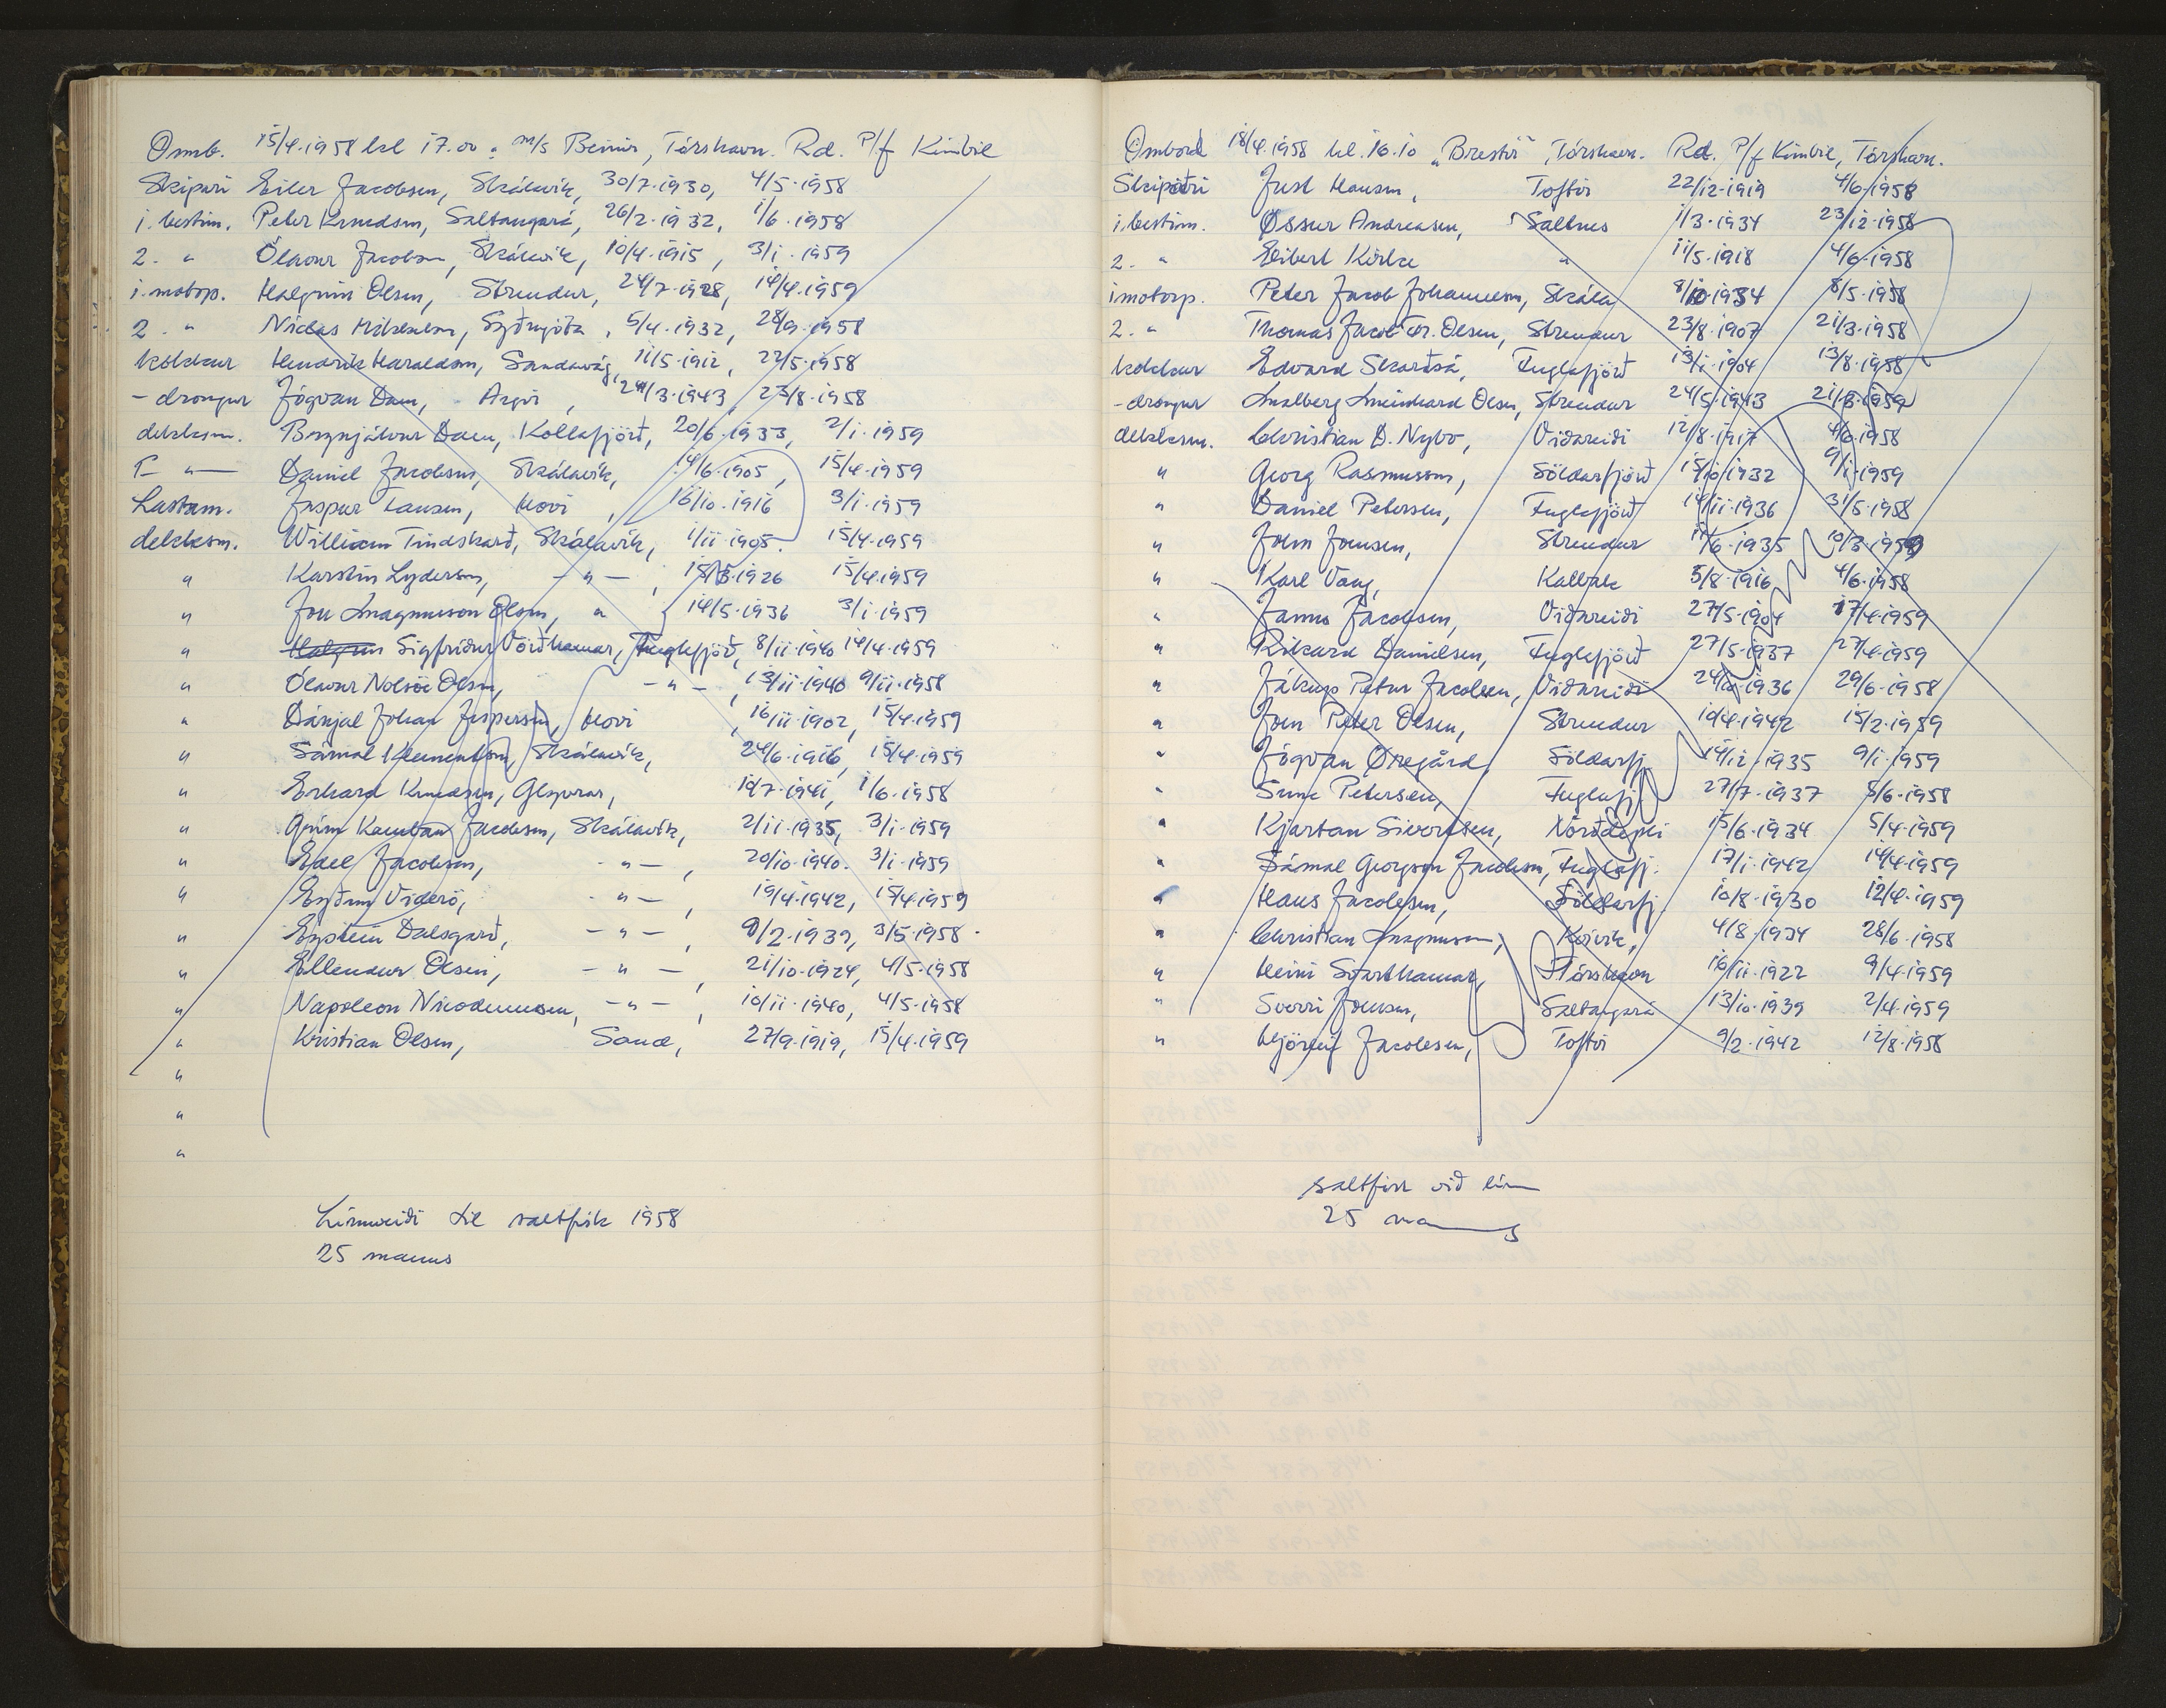 Omb. 15/4.1958 kl 17.00: M/S Beinir, Tórshavn. Rd. P/f Kimbil
Skipari Eiler Jacobsen, Skálavík, 30/7.1930, 4/5.1958
1. bestim. Peter Knudsen, Saltangará, 26/2.1932, 1/6.1958
2. " Ólavur Jacobsen, Skálavík, 10/4.1915, 3/1.1959
1. motorp. Halgrim Olsen, Strendur, 24/7.1928, 14/4.1959
2. " Niclas Mikkelsen, Syðrugöta, 5/4.1932, 28/9.1958
kokkur Hendrik Haraldsen, Sandavág, 11/5.1912, 22/5.1958
- drongur Jógvan Dam, Argir, 24/3.1943, 23/8.1958
dekksm. Brynjálvur Dam, Kollafjörð, 20/6.1933, 2/1.1959
1- " — Daniel Jacobsen, Skálavík, 14/6.1905, 15/4.1959
Lastam. Jaspur Hansen, Hovi, 16/10.1916 3/1.1959
dekksm. William Tindskarð, Skálavík, 1/11.1905. 15/4.1959
" Karstin Lydersen, - " -, 15/3.1926 15/4.1959
" Jon Magnusson Olsen, " 14/5.1936 3/1.1959
" Halgrim Sigfríður Vörðhamar, Fuglefjörð, 8/11.1940 14/4.1959
" Ólavur Nolsöe Olsen, - " -, 13/11.1940 9/11.1958
" Dánjal Johan Jespersen, Hovi, 16/11.1902, 15/4.1959
" Sámal Klementsen, Skálavík, 24/6.1916, 15/4.1959
" Erhard Knudsen, Glyvrar, 10/7.1941, 1/6.1958
" Grím Kamban Jacobsen, Skálavík, 2/11.1935, 3/1.1959
" Edel Jacobsen, - " -, 20/10.1940. 3/1.1959
" Eyðun Viderö, - " -, 19/4.1942, 15/4.1959
" Eystein Dalsgarð, - " -, 9/2.1939, 3/5.1958.
" Ellendur Olsen, - " -, 21/10.1924, 4/5.1958
" Napoleon Nicodemusen, - " -, 10/11.1940, 4/5.1958
" Kristian Olsen, Sand, 27/9.1919, 15/4.1959
"
"
"
Línuveiði til saltfisk 1958
25 manns
Ombord 18/4.1958 kl. 16.10 "Brestir", Tórshavn. Rd. P/f Kimbil, Tórshavn.
Skipari Just Hansen, Toftir 22/12.1919 4/6.1958
1. bestim. Øssur Andreasen, Saltnes 1/3.1934 23/12.1958
2. " Eibert Kirke " 11/5.1918 4/6.1958
1 motorp. Peter Jacob Johannesen, Skála 8/10.1934 8/5.1958
2. " Thomas Jacob Fr. Olsen, Strendur 23/8.1907 21/3.1958
kokkur Edvard Skarðsá, Fuglafjörð 13/1.1904 13/8.1958
- drongur Malberg Meinhard Olsen, Strendur 24/5.1943 21/3.1959
dekksm. Christian D. Nybo, Viðareiði 12/8.1917 4/6.1958
" Georg Rasmussen, Söldarfjörð 15/10.1932 9/1.1959
" Daniel Petersen, Fuglefjörð 14/11.1936 31/5.1958
" Joen Joensen, Strendur 11/6.1935 10/3.1959
" Karl Vang, Kalbak 5/8.1916 4/6.1958
" Janus Jacobsen, Viðareiði 27/5.1904 17/4.1959
" Rikard Danielsen, Fuglefjörð 27/5.1937 27/4.1959
" Jákup Petur Jacobsen, Viðareiði 24/10.1936 29/6.1958
" Joen Peter Olsen, Strendur 10/4.1942 15/2.1959
" Jógvan Øregård, Söldarfj. 14/12.1935 9/1.1959
" Sune Petersen, Fuglafj. 27/7.1937 5/6.1958
" Kjartan Sivertsen, Norðdepli 15/6.1934 5/4.1959
" Sámal Georgson Jacobsen, Fuglafj. 17/1.1942 14/4.1959
" Hans Jacobsen, Söldarfj. 10/8.1930 12/4.1959
" Christian Magnussen, Kvívík, 4/8.1934 28/6.1958
" Heini Svarthamar, Tórshavn 16/11.1922 9/4.1959
" Sverri Joensen, Saltangará 13/10.1939 2/4.1959
" Hjörleif Jacobsen, Toftir 9/2.1942 12/8.1958
saltfisk við línu
25 manns